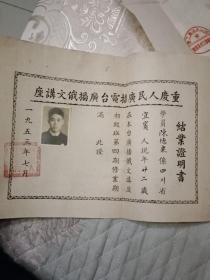 重慶人民廣播電台廣播俄文講座
結業證明書
學員陳德東係四川省
宜賓人現年廿二歲
在本台廣播俄文講座
初級班第四期修業期
滿 此證
一九五三年七月